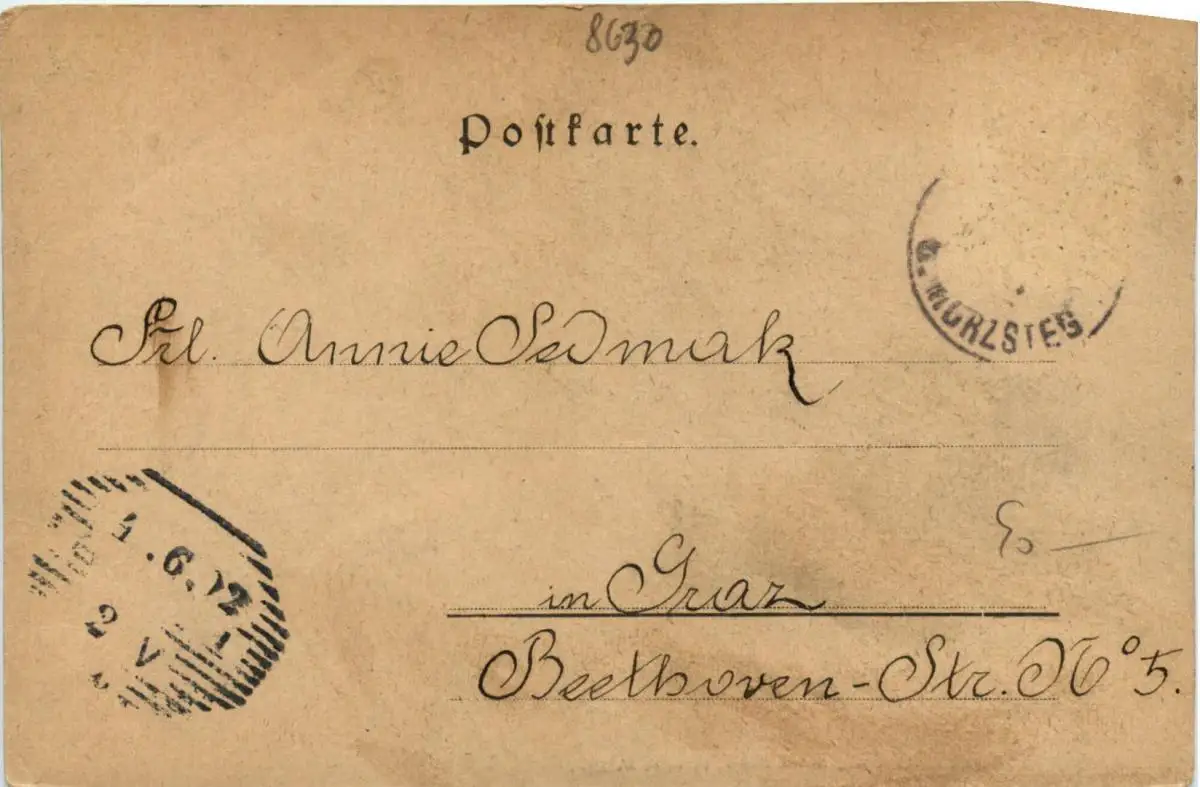 8630
Postkarte.
a. MÜRZSTEG
Frl. Annie Sedmak
1.6.02
2
V
in Graz
Beethoven-Str. No 5.